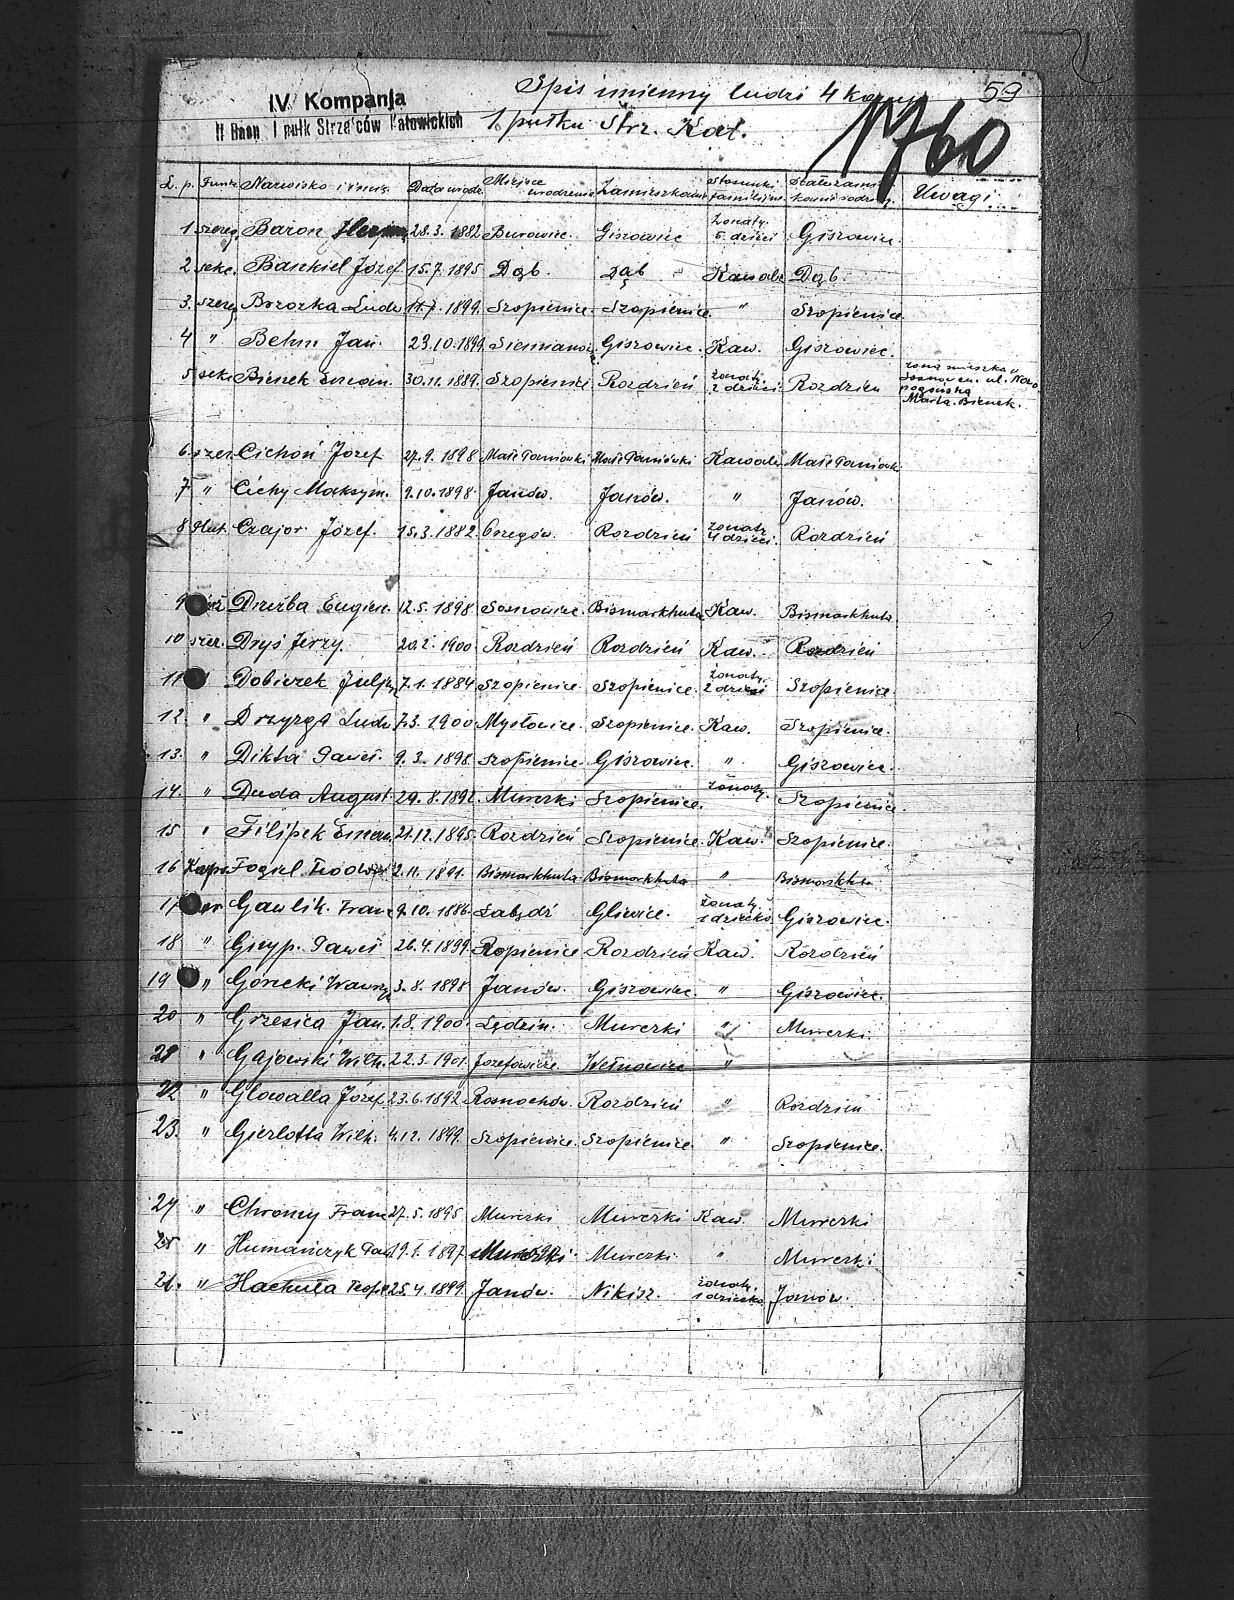 59
IV Kompanja
II Baon I pułk Strzelców Katowickich
Spis imienny ludzi 4 komp
1. pułku Strz. Kat.
1760
L. p. Funk. Nazwisko i imię Data urodz. Miejsce urodzenia Zamieszkanie Stosunki familijne Stałe zamieszkanie rodziny Uwagi
1 szereg. Baron 28.3.1882 Burowiec. Giszowiec żonaty. 5 dzieci Giszowiec.
2 sekc. Baschiel Józef 15.7.1895 Dąb. Dąb Kawaler Dąb.
3. szereg Brzozka Ludw 11.7.1899. Szopienice. Szopienice. " Szopienice.
4 " Behm Jan. 23.10.1899. Siemianow. Giszowiec. Kaw. Giszowiec.
5 sekc. Bienek Eman. 30.11.1889. Szopienice Rozdzień żonaty. 2 dzieci Rozdzień żona mieszka w Sosnowcu. ul. Nowopogońska Marta Bienek.
6. szer. Cichoń Józef 27.9.1898 Małe Paniówki Małe Paniówki Kawaler Małe Paniówki
7 " Cichy Maksym. 9.10.1898. Janów. Janów. " Janów.
8 Plut. Czajor Józef. 15.3.1882. Orzegów. Rozdzień żonaty 4 dzieci. Rozdzień
9 Drużba Eugien. 12.5.1898 Sosnowice. Bismarkhuta Kaw. Bismarkhuta
10 szer. Dryś Jerzy. 1900. Rozdzień Rozdzień Kaw. Rozdzień
11 Dobiczek Juljusz 7.1.1884 Szopienice. Szopienice. żonaty. 2 dzieci Szopienice
12. " Drzyzga Ludw. 7.3.1900 Mysłowice. Szopienice. Kaw. Szopienice.
13. " Dikta Paweł. 9.3.1898. Szopienice. Giszowiec. ". Giszowiec.
14. " Duda August 29.8.1892. Murcki Szopienice. żonaty. Szopienice.
15 " Filipek Eman. 21.12.1895. Rozdzień Szopienice. Kaw. Szopienice.
16 Kapr. Fogiel Teodor 2.11.1891. Bismarkhuta Bismarkhuta " Bismarkhuta
17 Gawlik. Fran. 9.10.1886. Łabędź Gliwice. żonaty. 1 dziecko Giszowiec.
18 " Gryp. Paweł 26.4.1899. Ropienice Rozdzień Kaw. Rozdzień
19 " Górecki Wawrzy. 3.8.1898 Janów. Giszowiec. " Giszowiec.
20 " Grzesica Jan. 1.8.1900. Lędzin. Murcki " Murcki.
21 " Gajowski Wilh. 22.3.1901. Józefowice. Wełnowiec "
22 " Glowalla Józef. 23.6.1892. Rosnochów. Rozdzień " Rozdzień
23. " Gierlotta Wilh. 4.12.1899. Szopienice. Szopienice. " Szopienice.
24 " Chromy Franc. 27.5.1895 Murcki Murcki Kaw. Murcki
25 " Humańczyk Paw. 1897. Murcki. Murcki. " Murcki.
26. " Hachuła Teofil 25.4.1899. Janów. Nikisz. żonaty. 1 dziecko Janów.